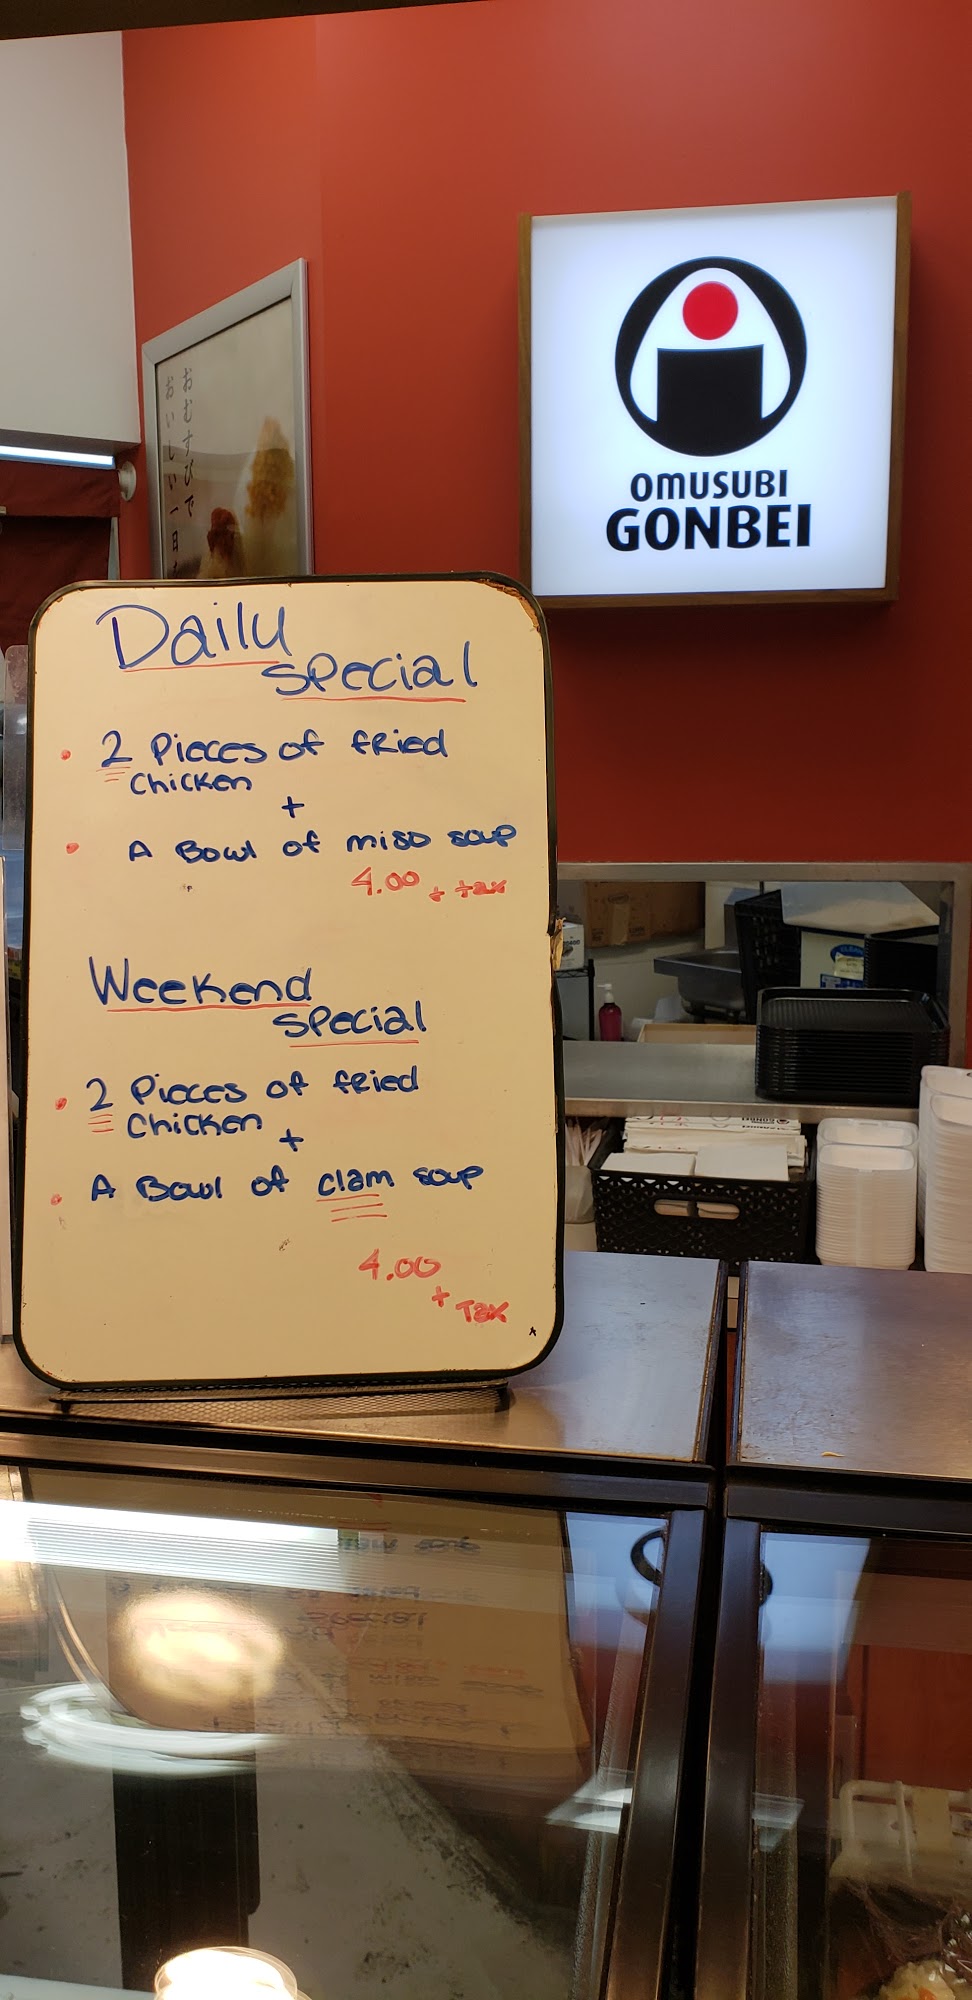 OMUSUBI
GONBEI
おむすびで
おいしい一日
Daily
special
• 2 Pieces of fried
Chicken
+
• A Bowl of miso soup
4.00 + tax
Weekend
special
• 2 Pieces of fried
Chicken
+
• A Bowl of clam soup
4.00
+ Tax